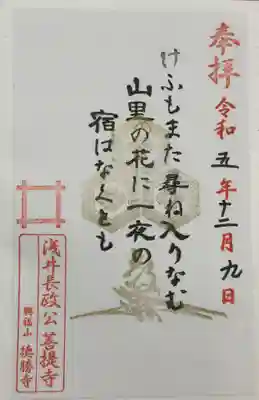 奉拝 令和五年十二月九日
けふもまた尋ね入りなむ
山里の花に一夜の
宿はなくとも
浅井長政公菩提寺
興福山 徳勝寺